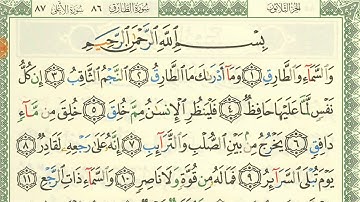 الجزء الثلاثون سورة الطارق ٨٦ سورة الأعلى ٨٧
بِسْمِ اللَّهِ الرَّحْمَٰنِ الرَّحِيمِ
وَالسَّمَاءِ وَالطَّارِقِ ١ وَمَا أَدْرَىٰكَ مَا الطَّارِقُ ٢ النَّجْمُ الثَّاقِبُ ٣ إِن كُلُّ
نَفْسٍ لَّمَّا عَلَيْهَا حَافِظٌ ٤ فَلْيَنظُرِ الْإِنسَٰنُ مِمَّ خُلِقَ ٥ خُلِقَ مِن مَّاءٍ
دَافِقٍ ٦ يَخْرُجُ مِن بَيْنِ الصُّلْبِ وَالتَّرَائِبِ ٧ إِنَّهُ عَلَىٰ رَجْعِهِ لَقَادِرٌ ٨
يَوْمَ تُبْلَى السَّرَائِرُ ٩ فَمَا لَهُ مِن قُوَّةٍ وَلَا نَاصِرٍ ١٠ وَالسَّمَاءِ ذَاتِ الرَّجْعِ ١١